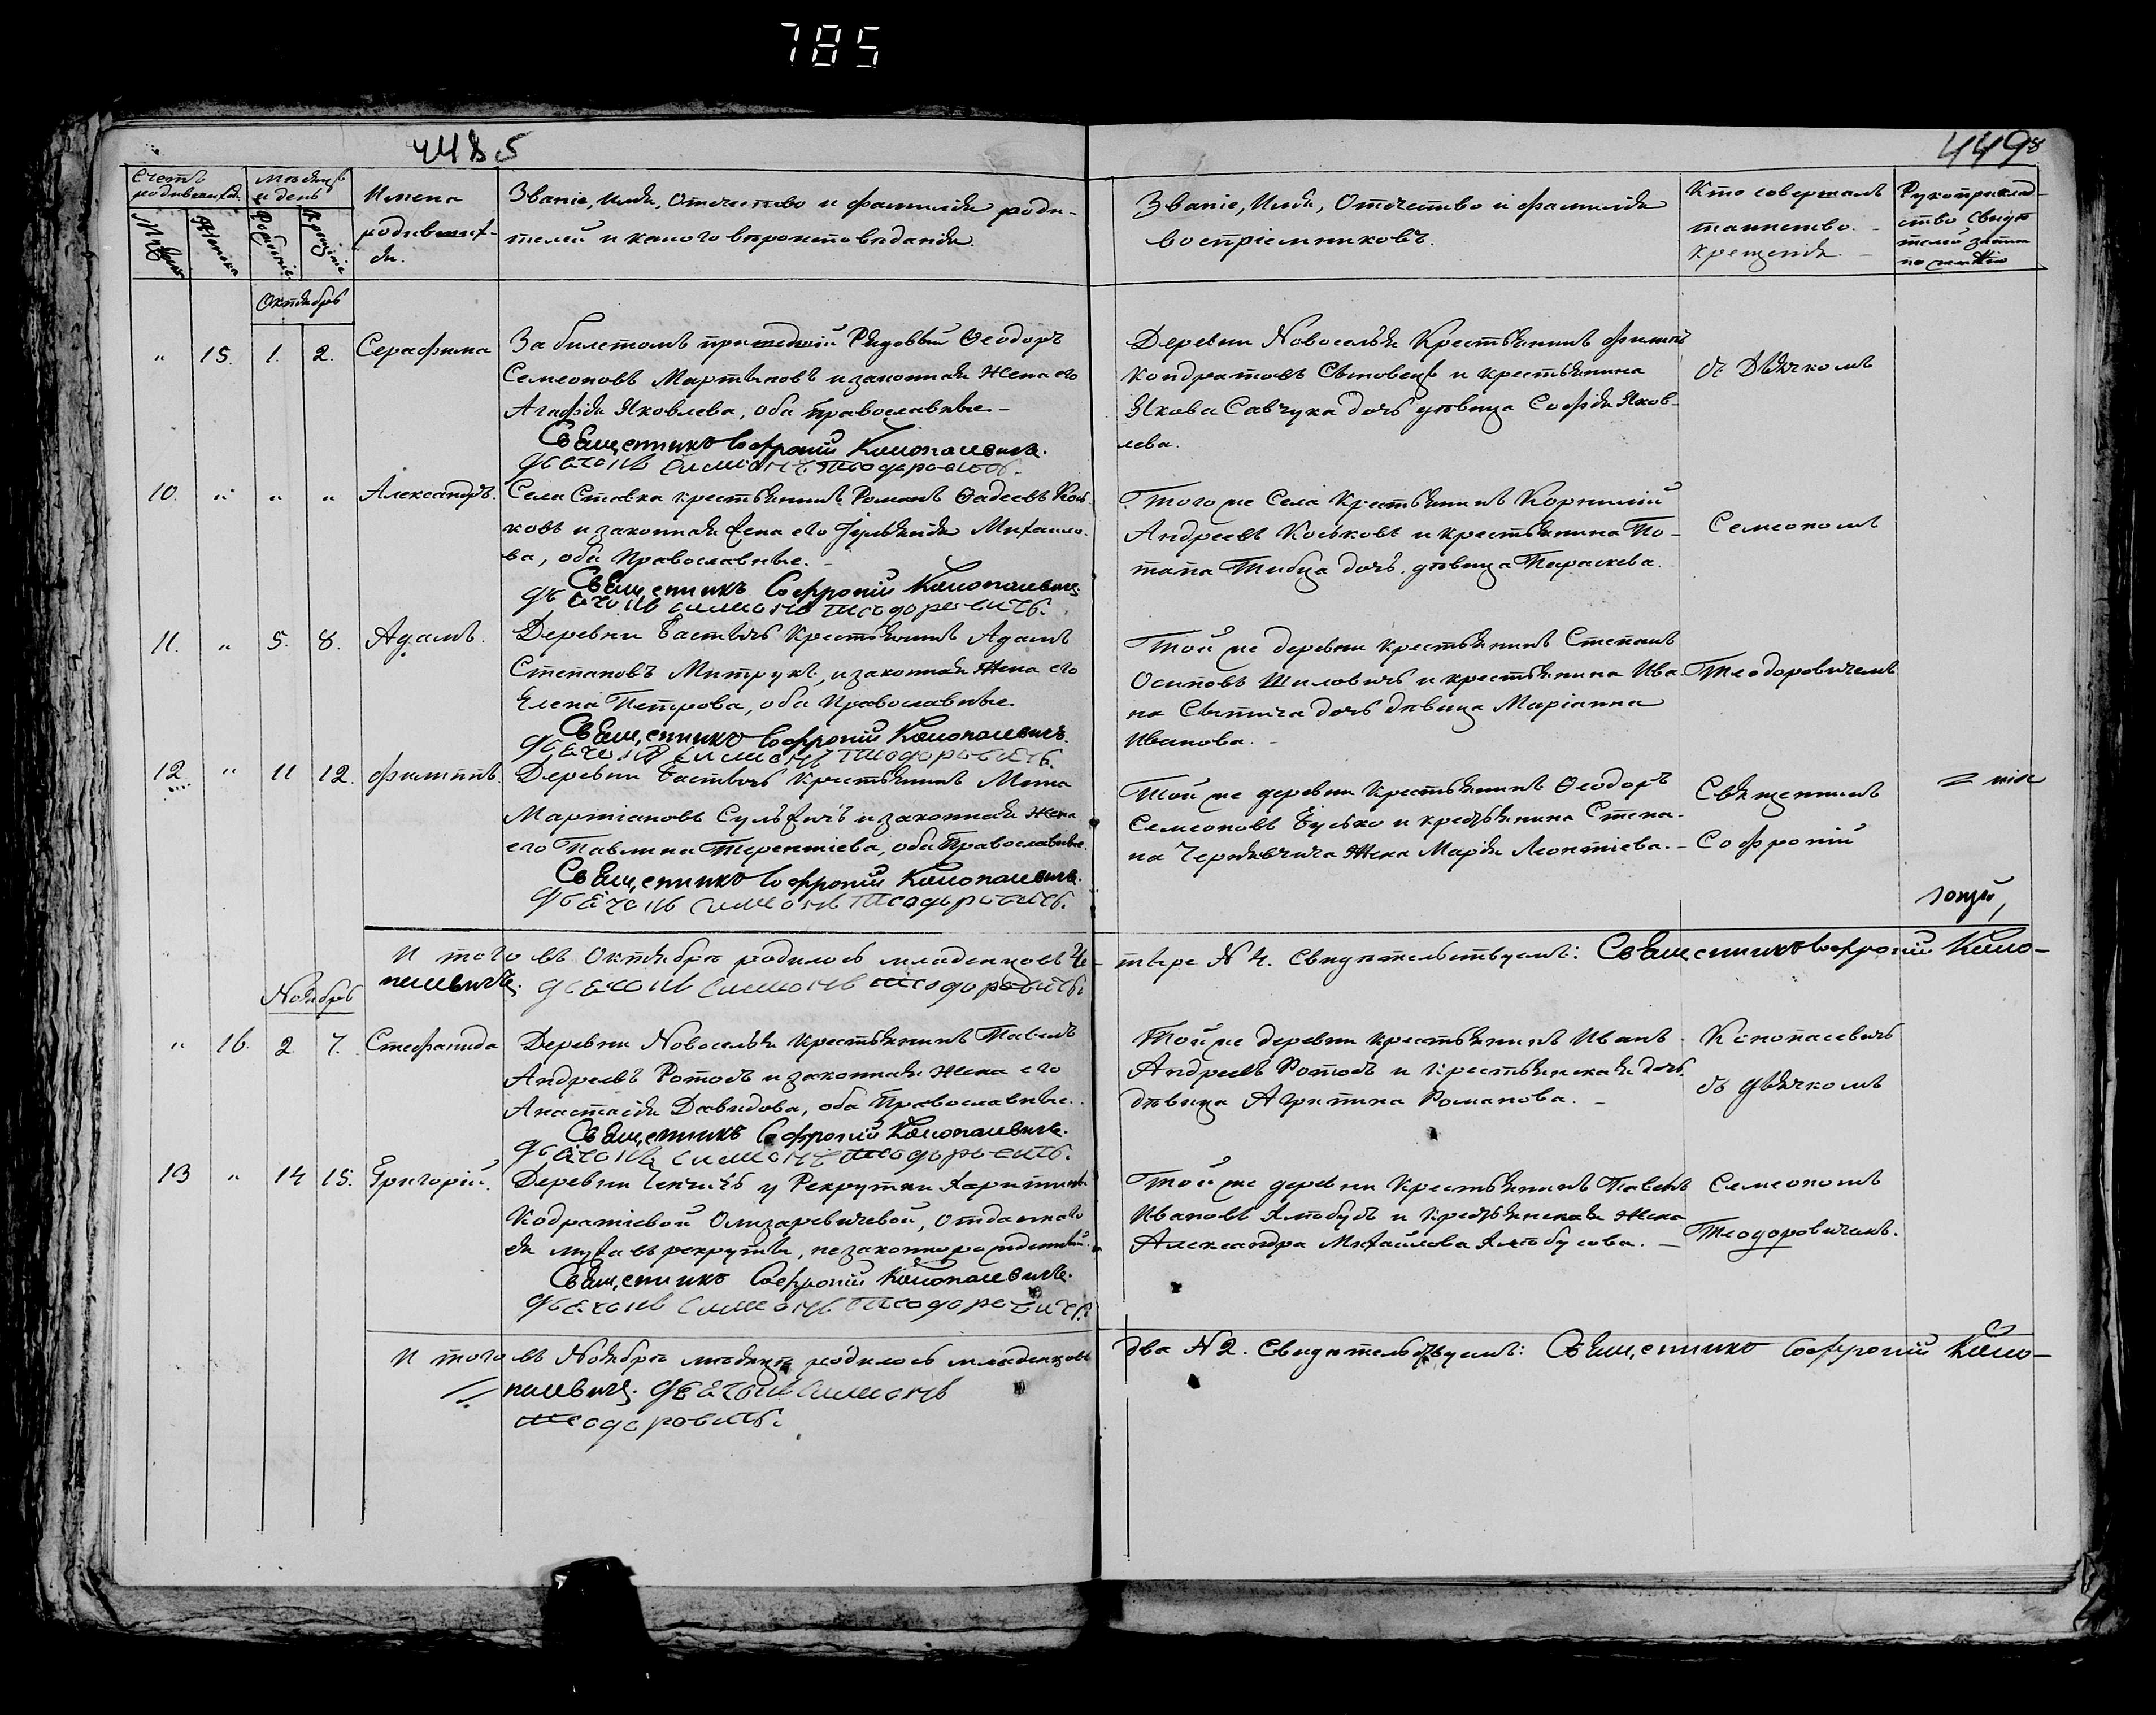 785
448 5
4498
Счетъ родившихся
Мѣсяцъ и день
Имена родившихся.
Званіе, Имя, Отчество и фамилія роди-
телей и какого вѣроисповѣданія.
Званіе, Имя, Отчество и фамилія
воспріемниковъ.
Кто совершалъ
таинство
крещенія.
Рукоприклад-
ство свидѣ
телей записи
по желанію
Мужеска
Женска
Рожденія
Крещенія
Октябрь
" 15. 1. 2. Серафима
За билетомъ пришедшій Рядовый Ѳеодоръ
Семеоновъ Мартыновъ и законная Жена его
Агафія Яковлева, оба Православные.
Священникъ Софроній Конопасевичъ.
Дьячокъ Симеонъ Теодоровичъ.
Деревни Новоселья Крестьянинъ Филипъ
Кондратовъ и крестьянина
Якова Савчука дочь дѣвица Софія Яков-
лева.
съ Дьячкомъ
10. " " " Александръ.
Села Ставка крестьянинъ Романъ Фадеевъ Кось
ковъ и законная жена его Іульянія Михайло-
ва, оба Православные.
Священникъ Софроній Конопасевичъ
Дьячокъ Симеонъ Теодоровичъ.
Того же Села Крестьянинъ Корнилій
Андреевъ Коськовъ и крестьянина По-
тапа дочь, дѣвица Параскева.
Семеономъ
11. " 5. 8. Адамъ.
Деревни Крестьянинъ Адамъ
Степановъ Митрукъ, и законная Жена его
Елена Петрова, оба Православные.
Священникъ Софроній Конопасевичъ
Дьячокъ Симеонъ Теодоровичъ.
Той же деревни крестьянинъ Степанъ
Осиповъ Шиловичъ и крестьянина Ива-
на Свитича дочь дѣвица Маріанна
Иванова.
Теодоровичемъ
12 " 11 12. Филиппъ.
Деревни Крестьянинъ Мина
Мартіановъ и законная Жена
его Павлина Терентіева, оба Православные.
Священникъ Софроній Конопасевичъ.
Дьячокъ Симеонъ Теодоровичъ.
Той же деревни Крестьянинъ Ѳеодоръ
Семеоновъ Буйко и крестьянина Степа-
на Чернявчича Жена Марія Леонтіева.
Священникъ
Софроній
И того въ Октябрѣ родилось младенцовъ Че-
тыре N 4. Свидѣтельствуемъ: Священникъ Софроній Коно-
пасевичъ. Дьячокъ Симеонъ Теодоровичъ.
Ноябрь
" 16. 2 7. Стефанида
Деревни Новоселья Крестьянинъ Павелъ
Андреевъ Ротовъ и законная Жена его
Анастасія Давидова, оба Православные.
Священникъ Софроній Конопасевичъ.
Дьячокъ Симеонъ Теодоровичъ.
Той же деревни крестьянинъ Иванъ
Андреевъ Ротовъ и Крестьянская дочь
дѣвица Агрипина Романова.
Конопасевичъ
съ Дьячкомъ
13 " 14 15. Григорій.
Деревни у Рекрутки Харитины
Кодратіевой Олизаревичевой, отданнаго
ея мужа въ рекруты, незаконнорожденный.
Священникъ Софроній Конопасевичъ.
Дьячокъ Симеонъ Теодоровичъ
Той же деревни Крестьянинъ Павелъ
Ивановъ и Крестьянская Жена
Александра Михайлова
Семеономъ
Теодоровичемъ.
И того въ Ноябрѣ мѣсяцѣ родилось младенцовъ
два N 2. Свидѣтельствуемъ: Священникъ Софроній Коно-
пасевичъ. Дьячокъ Симеонъ
Теодоровичъ.